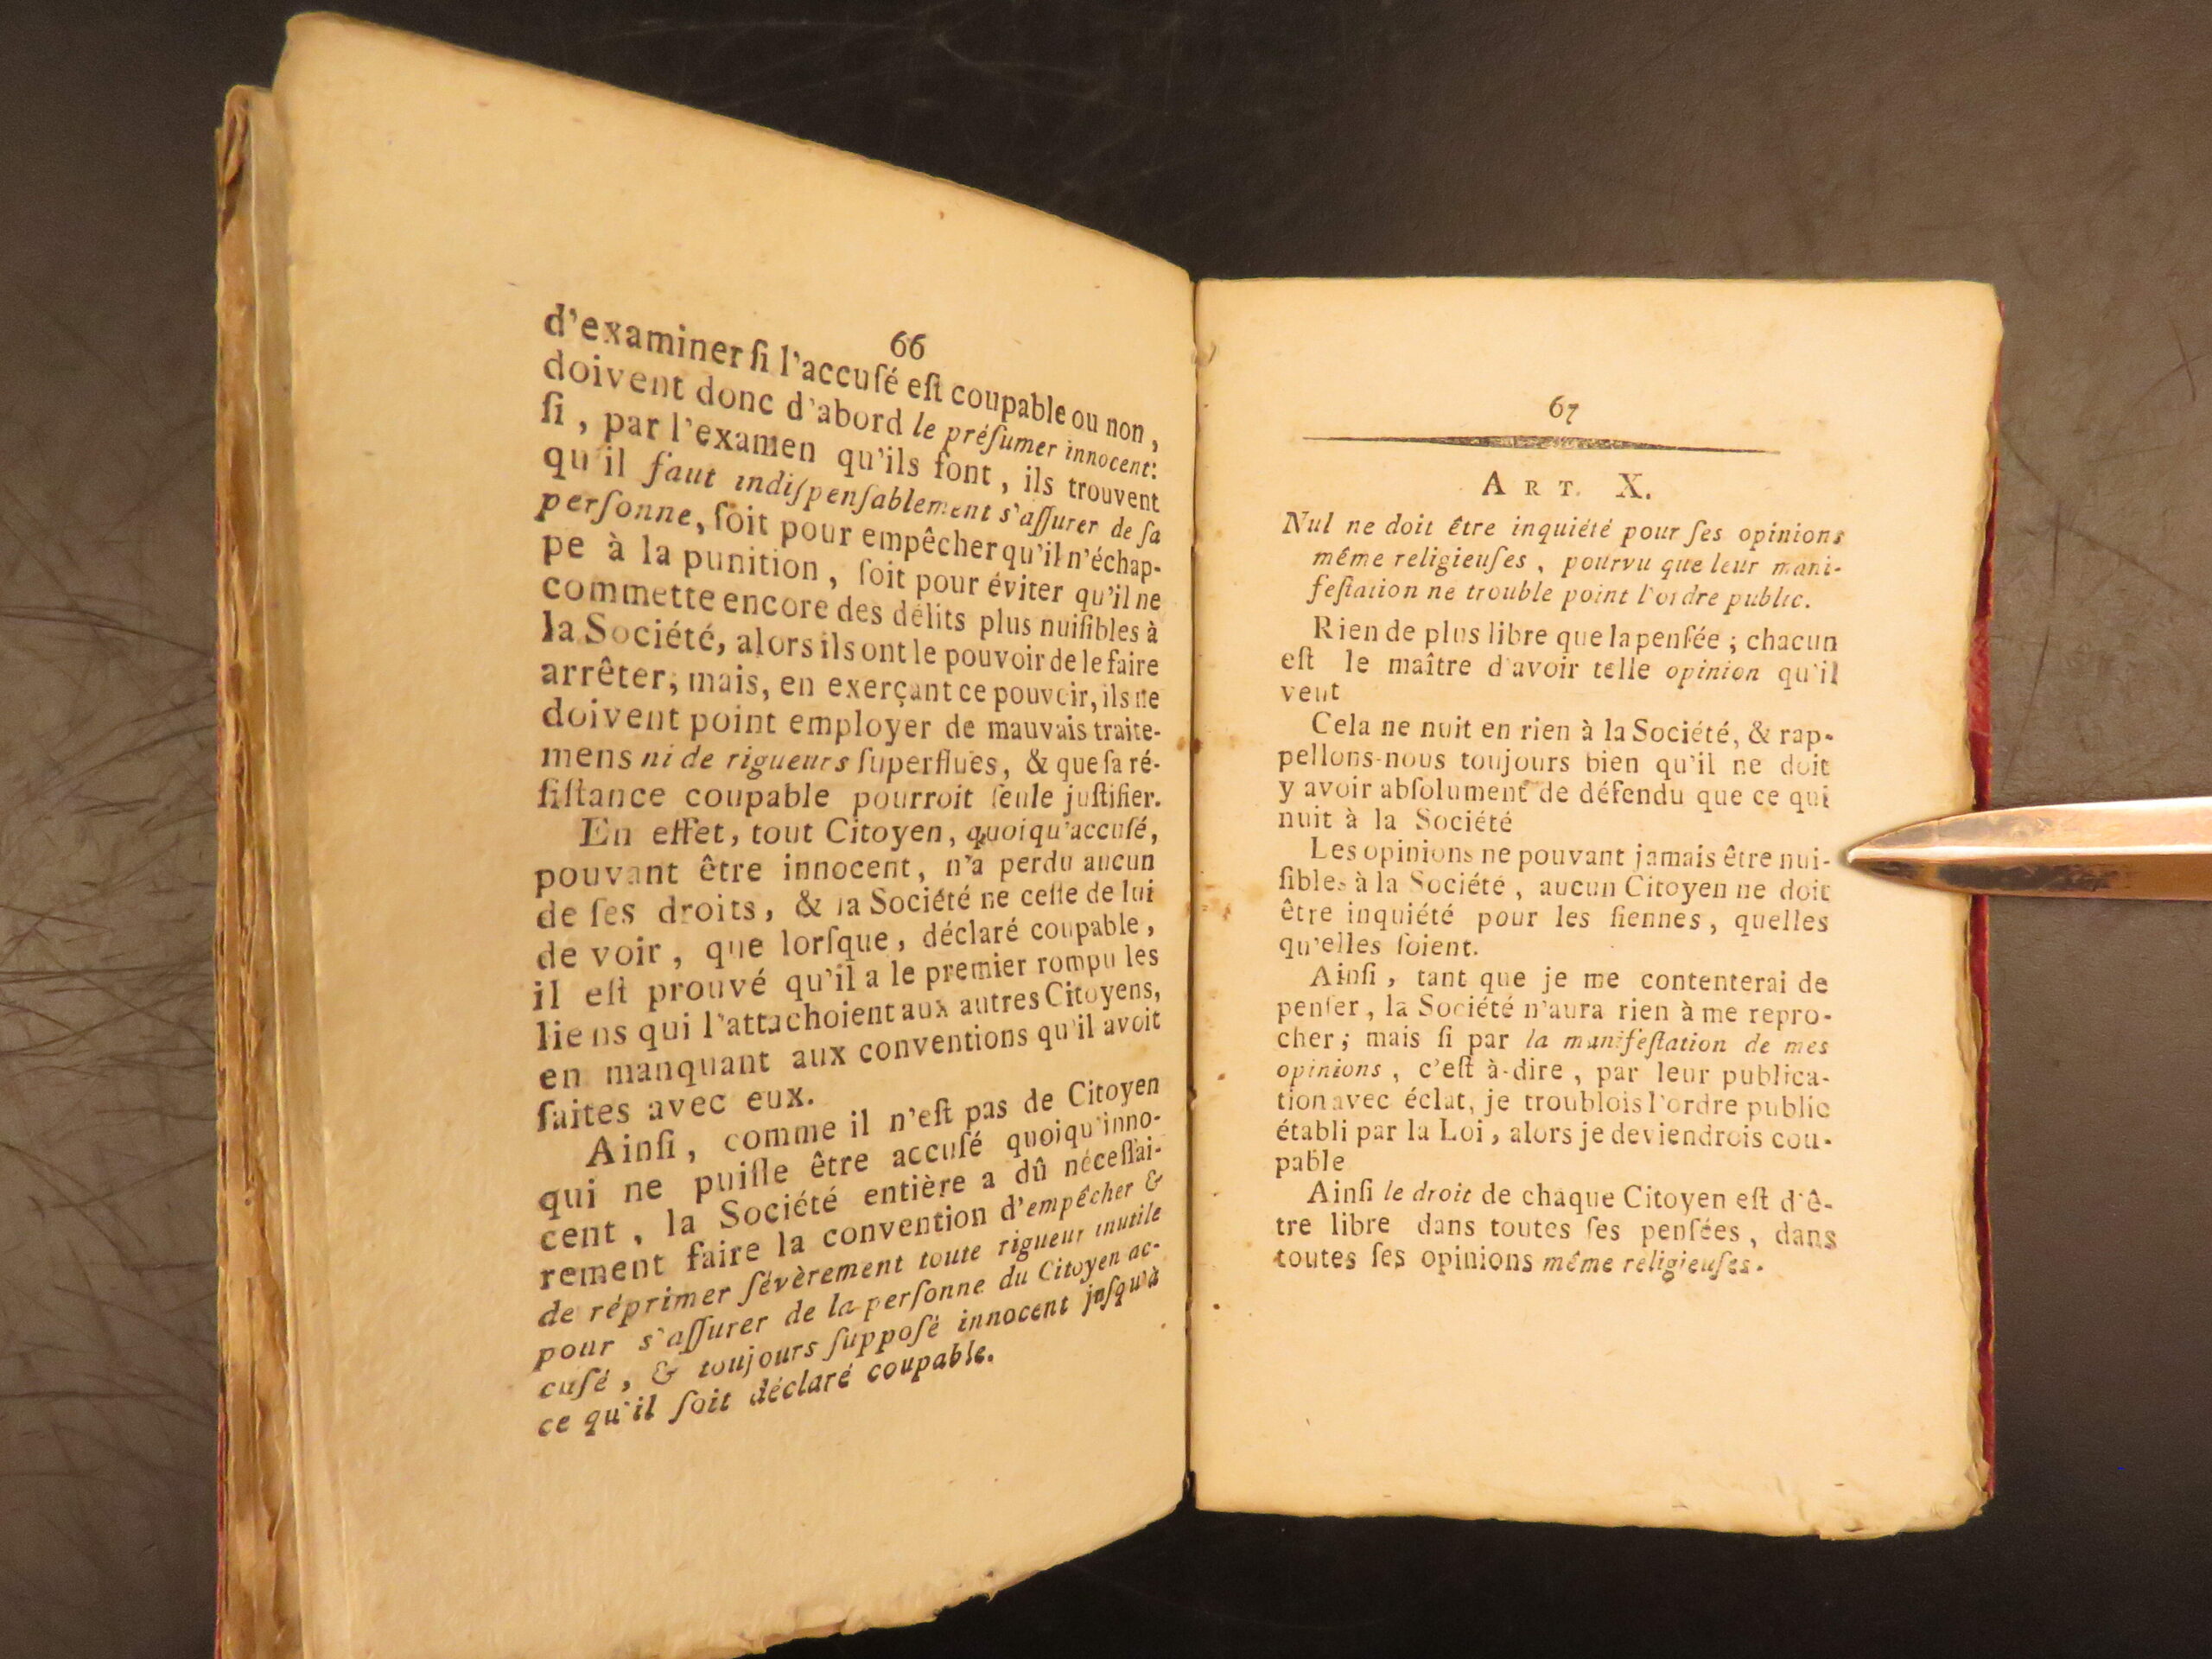 66
d'examiner ſi l'accuſé eſt coupable ou non,
doivent donc d'abord le préſumer innocent:
ſi, par l'examen qu'ils font, ils trouvent
qu'il faut indiſpenſablement s'aſſurer de ſa
perſonne, ſoit pour empêcher qu'il n'échap-
pe à la punition, ſoit pour éviter qu'il ne
commette encore des délits plus nuiſibles à
la Société, alors ils ont le pouvoir de le faire
arrêter; mais, en exerçant ce pouvoir, ils ne
doivent point employer de mauvais traite-
mens ni de rigueurs ſuperflues, & que ſa ré-
ſiſtance coupable pourroit ſeule juſtifier.
En effet, tout Citoyen, quoiqu'accuſé,
pouvant être innocent, n'a perdu aucun
de ſes droits, & la Société ne ceſſe de lui
de voir, que lorſque, déclaré coupable,
il eſt prouvé qu'il a le premier rompu les
liens qui l'attachoient aux autres Citoyens,
en manquant aux conventions qu'il avoit
faites avec eux.
Ainſi, comme il n'eſt pas de Citoyen
qui ne puiſſe être accuſé quoiqu'inno-
cent, la Société entière a dû néceſſai-
rement faire la convention d'empêcher &
de réprimer ſévèrement toute rigueur inutile
pour s'aſſurer de la perſonne du Citoyen ac-
cuſé, & toujours ſuppoſé innocent juſqu'à
ce qu'il ſoit déclaré coupable.
67
ART. X.
Nul ne doit être inquiété pour ſes opinions
même religieuſes, pourvu que leur mani-
feſtation ne trouble point l'ordre public.
Rien de plus libre que la penſée; chacun
eſt le maître d'avoir telle opinion qu'il
veut
Cela ne nuit en rien à la Société, & rap-
pellons-nous toujours bien qu'il ne doit
y avoir abſolument de défendu que ce qui
nuit à la Société
Les opinions ne pouvant jamais être nui-
ſibles à la Société, aucun Citoyen ne doit
être inquiété pour les ſiennes, quelles
qu'elles ſoient.
Ainſi, tant que je me contenterai de
penſer, la Société n'aura rien à me repro-
cher; mais ſi par la manifeſtation de mes
opinions, c'eſt à-dire, par leur publica-
tion avec éclat, je troublois l'ordre public
établi par la Loi, alors je deviendrois cou-
pable
Ainſi le droit de chaque Citoyen eſt d'ê-
tre libre dans toutes ſes penſées, dans
toutes ſes opinions même religieuſes.